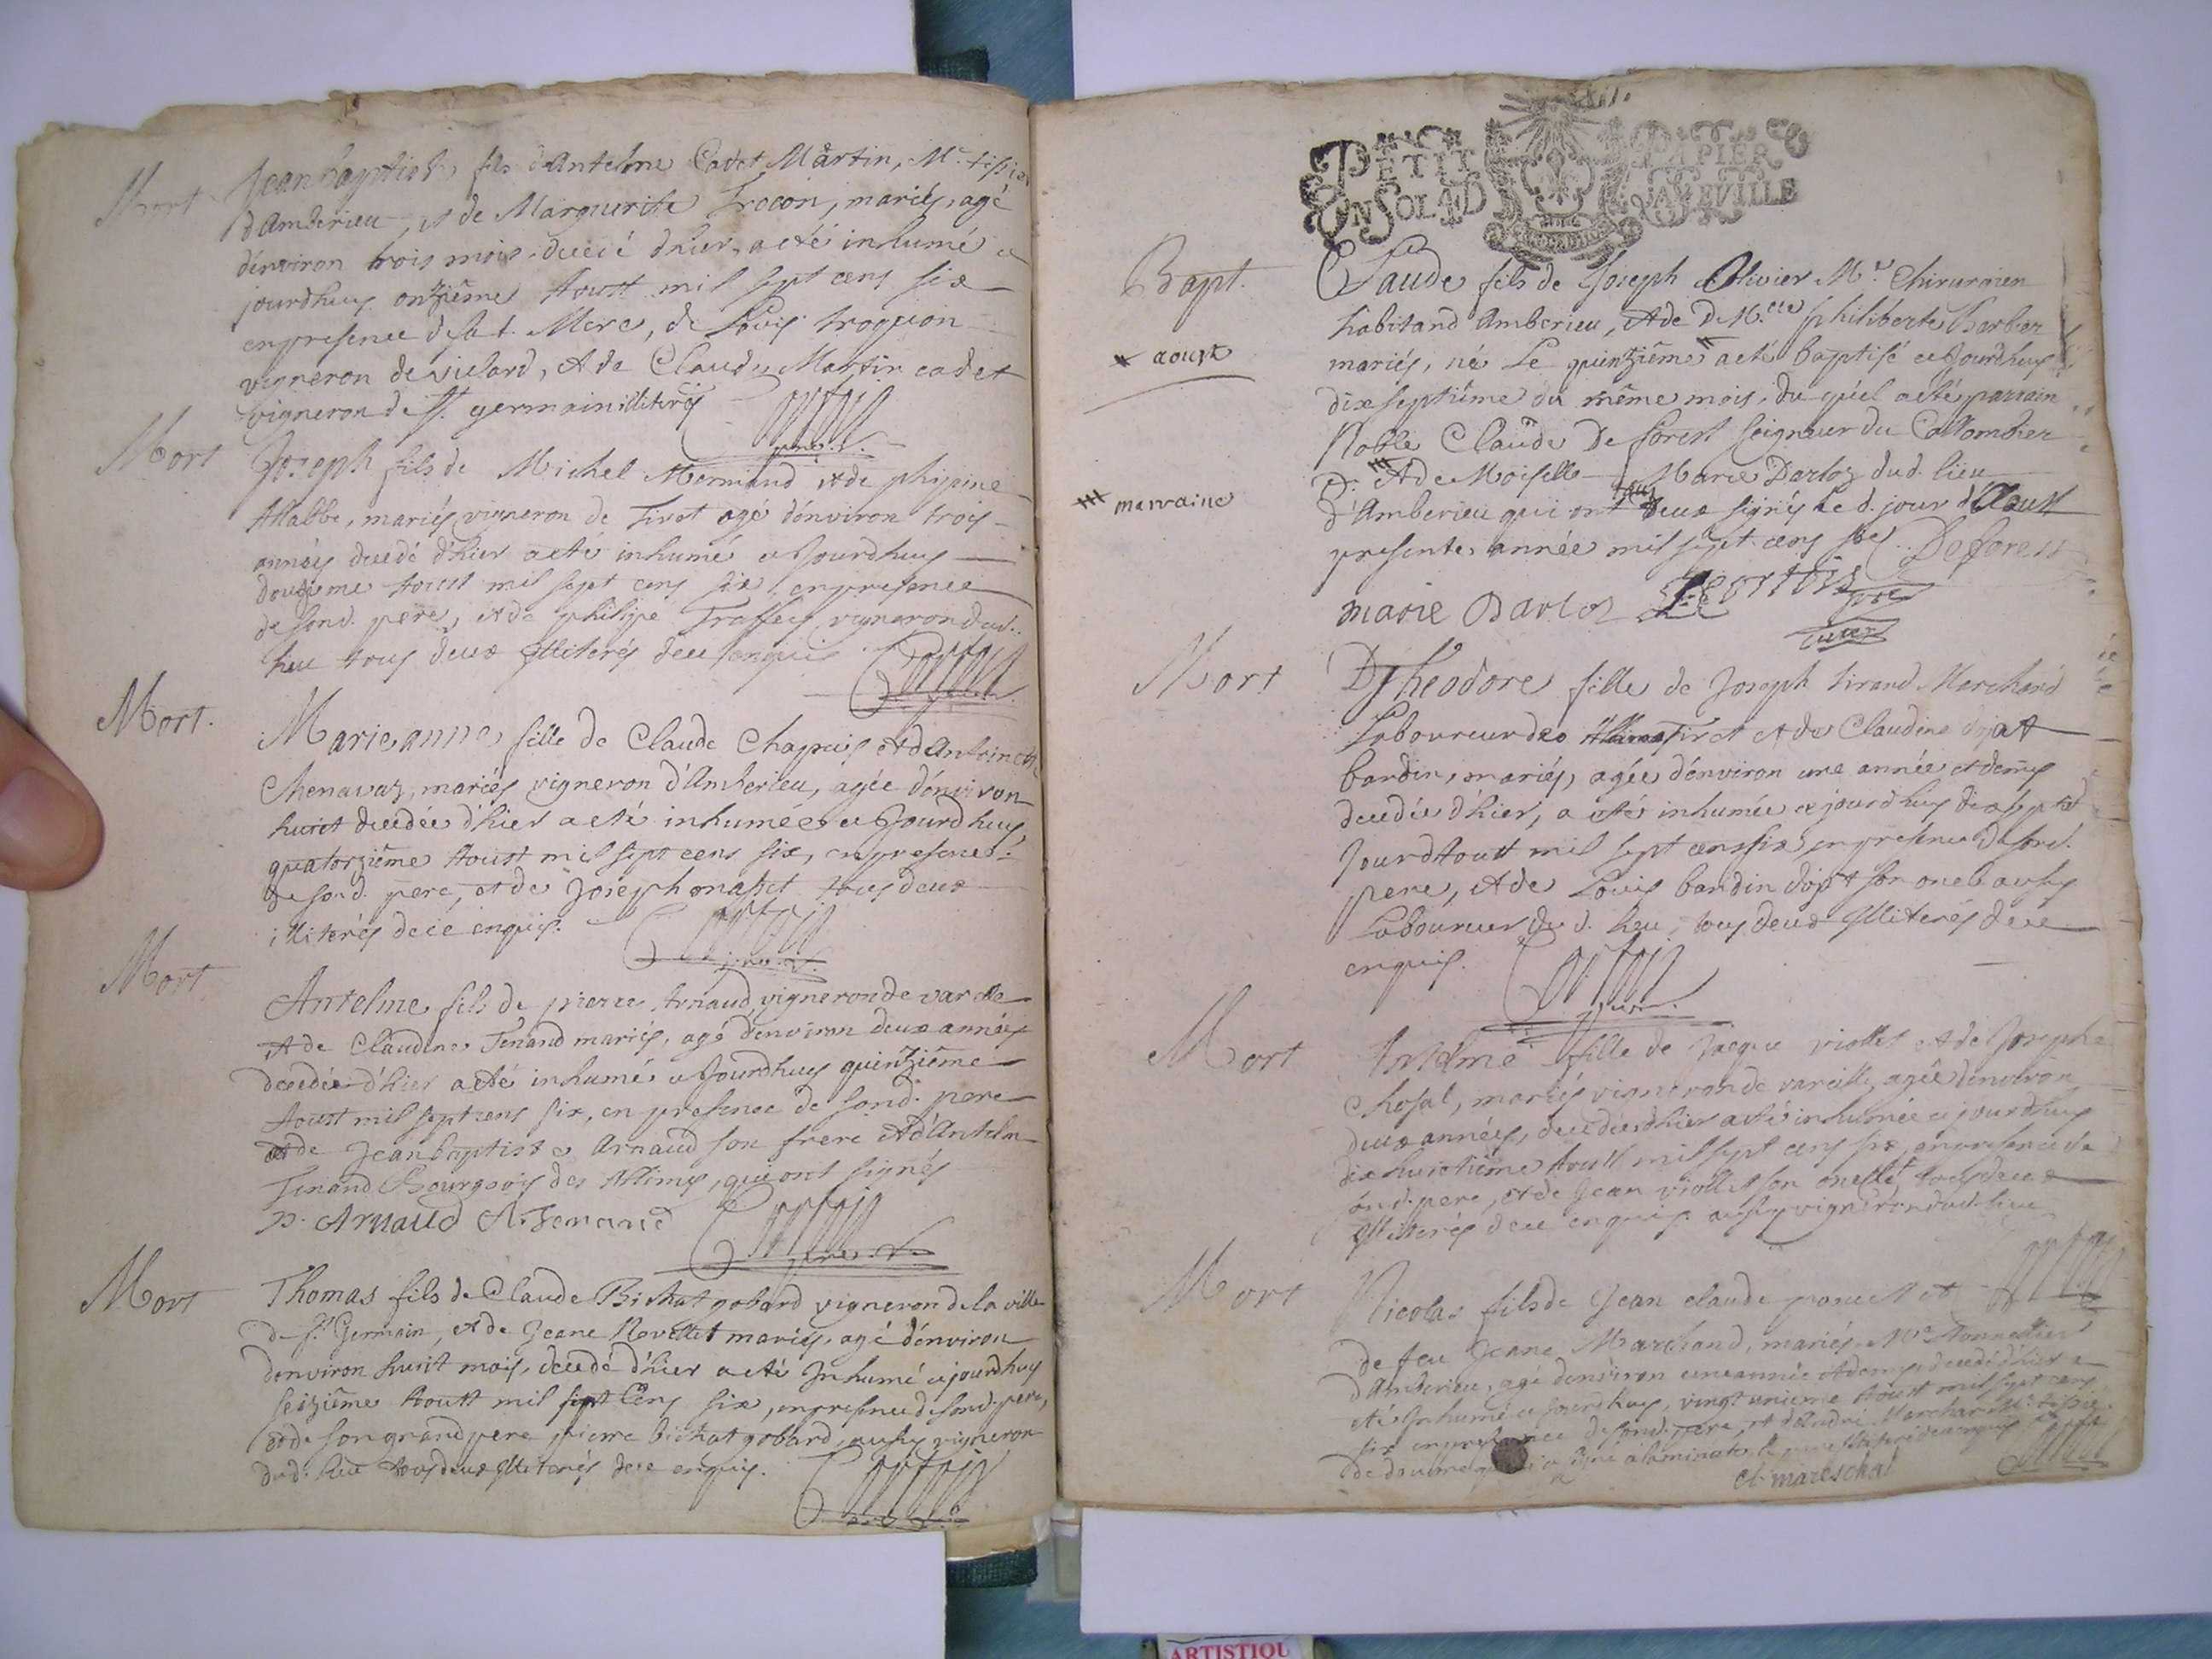 Mort
Jean baptiste fils d'Antelme Cadet Martin, Me. tissier
d'Amberieu, et de Marguerite Trocon, mariés, agé
d'environ trois mois decedé d'hier, a eté inhumé ce
jourdhuy onzième Aoust mil sept cens six
en presence de sad. Mere, de Louis troquon
vigneron de vilard, et de Claude Martin cadet
vigneron de St. germain illiterés
Mort
Joseph fils de Michel Mermand et de phipine
Allabbe, mariés vigneron de Tiret agé d'environ trois
années decedé d'hier a eté inhumé ce Jourdhuy
douzieme Aoust mil sept cens six, en presence
de sond. pere, et de philipe vigneron dud.
lieu tous deux illiterés de ce enquis
Mort.
Marieanne fille de Claude Chapuis et d'Antoinette
Chenavaz, mariés vigneron d'Amberieu, agée d'environ
huict decedée d'hier a eté inhumée ce Jourdhuy
quatorzième Aoust mil sept cens six, en presence
de sond. pere, et de Joseph tous deux
illiterés de ce enquis.
Mort
Antelme fils de pierre Arnaud vigneron de vareille
et de Claudine Tenand mariés, agé d'environ deux années
decedée d'hier a eté inhumé ce Jourdhuy quinzième
Aoust mil sept cens six, en presence de sond. pere
et de Jean baptiste Arnaud son frere et d'Antelme
Tenand Bourgeois des Allimes, qui ont signés
p. Arnaud A. Tenand
Mort
Thomas fils de Claude Bichat gobard vigneron de la ville
de St. Germain, et de Jeane Novellet mariés, agé d'environ
d'environ huit mois, decedé d'hier a eté Inhumé ce jourdhuy
seizième Aoust mil sept Cens six, en presence de sond. pere,
et de son grand pere pierre bichat gobard, aussy vigneron
dud. lieu tous deux illiterés de ce enquis.
PETIT PAPIER
EN SOL 4 D LA FEUILLE
Bapt.
Claude fils de Joseph Olivier Me. Chirurgien
habitand Amberieu, et de D.elle philiberte Barbier
mariés, né le quinzième a eté baptisé ce Jourdhuy
× aoust
dixseptième du même mois, du quel a eté parrain
Noble Claude De forest seigneur du Collombier
et de Moiselle Marie Darloz dud. lieu
marraine
d'Amberieu qui ont tous deux signés le d. jour d'Aoust
presente année mil sept cens six Deforest
marie Darloz
Mort
Theodore fille de Joseph tirand Marchand
Laboureur de Tiret et de Claudine dopat
bardin, mariés, agée d'environ une année et demy
decedée d'hier, a eté inhumée ce jourdhuy dix sept
Jour d'Aoust mil sept cens six, en presence de sond.
pere, et de Louis bardin dopat son oncle aussy
Laboureur du d. lieu, tous deux illiterés de ce
enquis.
Mort
Antelme fille de Jacque viollet et de Josephe
Chosal, mariés vigneron de vareille, agée d'environ
deux années, decedée d'hier a eté inhumée ce jourdhuy
dix huictième Aoust mil sept cens six en presence de
sond. pere, et de Jean viollet son oncle, tous deux
illiterés de ce enquis aussy vigneron dud. lieu
Mort
Nicolas fils de Jean claude poncet et
de feu Jeane Marchand, mariés Me.
d'Amberieu, agé d'environ une année et demy decedé d'hier a
eté Inhumé ce jourdhuy, vingt unieme Aoust mil sept cens
six en presence de sond. pere, et d'André Me. tissier
de douvre a signé a la minute
mareschal